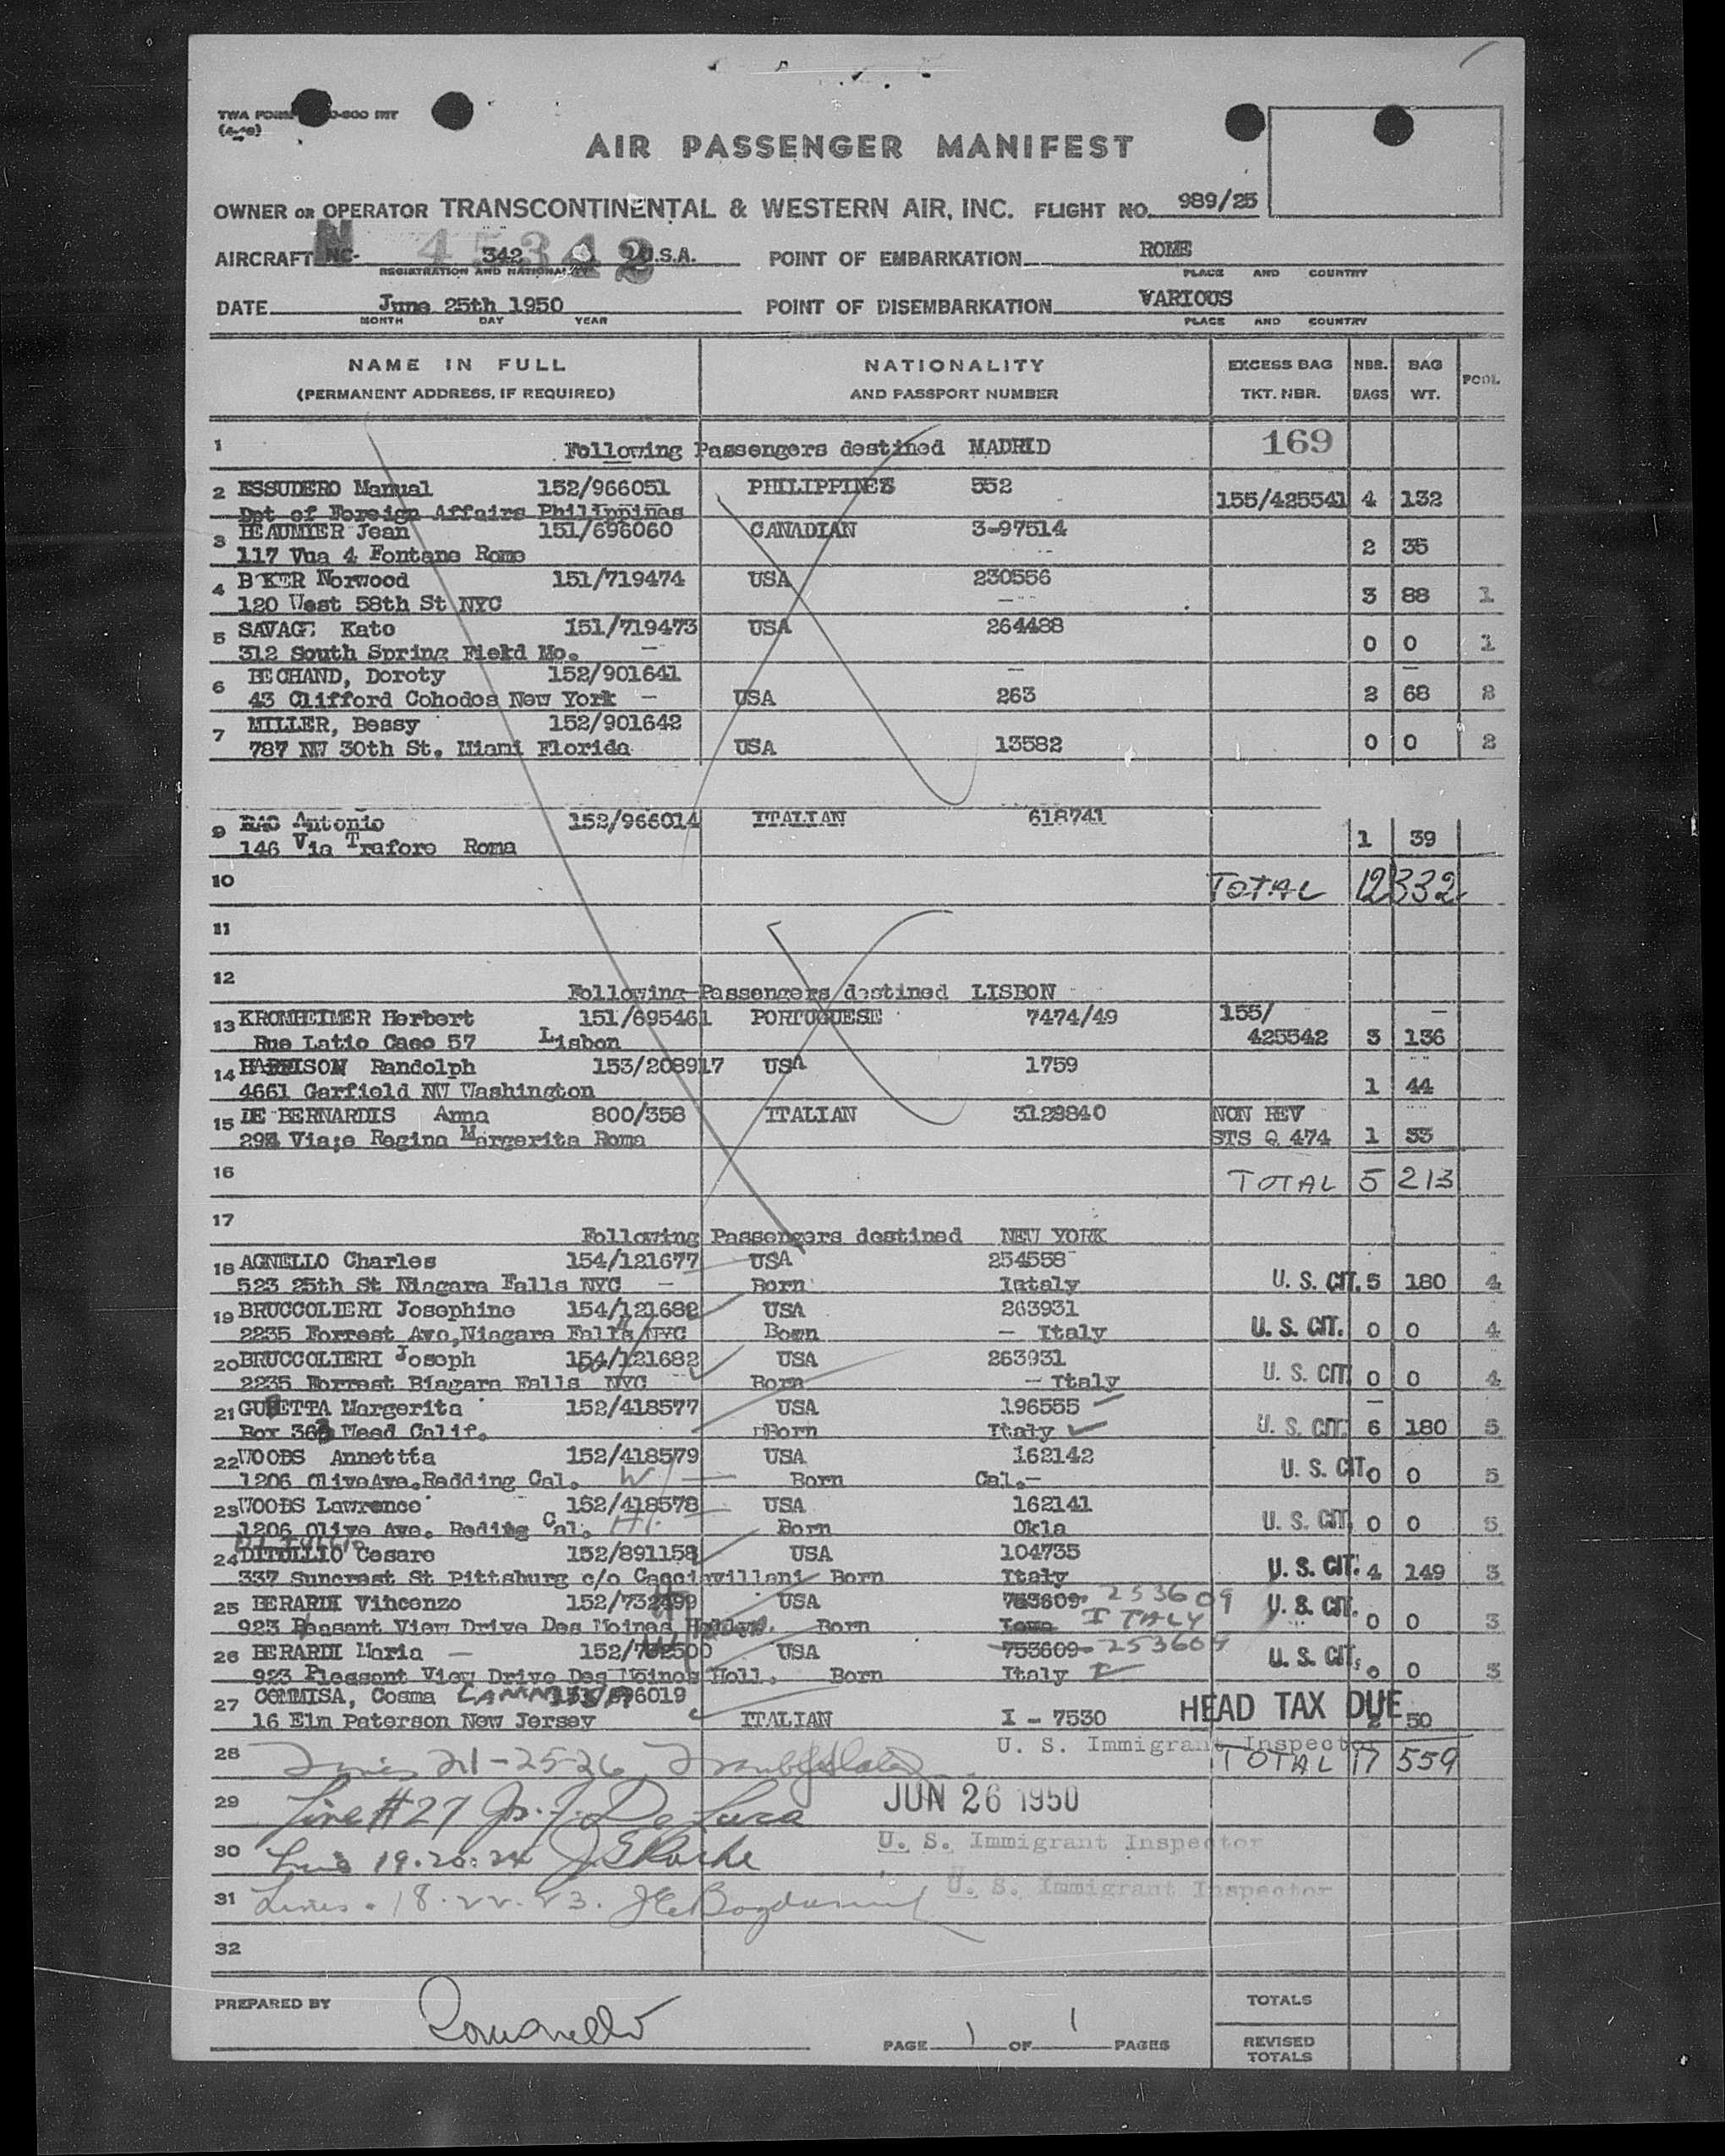 TWA FORM 0-800 INT
AIR PASSENGER MANIFEST
OWNER OR OPERATOR TRANSCONTINENTAL & WESTERN AIR, INC. FLIGHT NO. 989/25
AIRCRAFT NC- 342 U.S.A. N 45342 POINT OF EMBARKATION ROME
REGISTRATION AND NATIONALITY PLACE AND COUNTRY
DATE June 25th 1950 POINT OF DISEMBARKATION VARIOUS
MONTH DAY YEAR PLACE AND COUNTRY
NAME IN FULL NATIONALITY EXCESS BAG NBR. BAG POOL
(PERMANENT ADDRESS, IF REQUIRED) AND PASSPORT NUMBER TKT. NBR. BAGS WT.
1 Following Passengers destined MADRID 169
2 ESSUDERO Manual 152/966051 PHILIPPINES 552 155/425541 4 132
Dpt of Foreign Affairs Philippines
3 BEAUMIER Jean 151/696060 CANADIAN 3-97514
117 Vua 4 Fontane Rome 2 35
4 B KER Norwood 151/719474 USA 230556
120 West 58th St NYC 3 88 1
5 SAVAGE Kato 151/719473 USA 264488
312 South Spring Fiekd Mo. 0 0 1
6 BECHAND, Doroty 152/901641
43 Clifford Cohodos New York USA 263 2 68 2
7 MILLER, Bessy 152/901642
787 NW 30th St. Miami Florida USA 13582 0 0 2
9 RAO Antonio 152/966014 ITALIAN 618741
146 Via Traforo Roma 1 39
10 TOTAL 12 332
11
12 Following Passengers destined LISBON
13 KRONHEIMER Herbert 151/695461 PORTUGUESE 7474/49 155/
Rue Latio Caeo 57 Lisbon 425542 3 136
14 HARRISON Randolph 153/208917 USA 1759
4661 Garfield NW Washington 1 44
15 DE BERNARDIS Anna 800/358 ITALIAN 3128840 NON REV
Regina Margerita Roma STS Q 474 1 33
16 TOTAL 5 213
17 Following Passengers destined NEW YORK
18 AGNELLO Charles 154/121677 USA 254558
523 25th St Niagara Falls NYC Born Iataly U. S. CIT. 5 180 4
19 BRUCCOLIERI Josephine 154/121682 USA 263931
2235 Forrest Ave,Niagara Falls NYC Born Italy U. S. CIT. 0 0 4
20 BRUCCOLIERI Joseph 154/121682 USA 263931
2235 Forrest Biagara Falls NYC Born Italy U. S. CIT 0 0 4
21 GUBETTA Margerita 152/418577 USA 196555
Box Weed Calif. Born Italy U. S. CIT. 6 180 5
22 WOODS Annettta 152/418579 USA 162142
1206 OliveAve.Redding Cal. W Born Cal. U. S. CIT 0 0 5
23 WOODS Lawrence 152/418578 USA 162141
1206 Olive Ave. Reding Cal. H. Born Okla U. S. CIT. 0 0 5
DI TULLIO
24 DITULLIO Cesare 152/891158 USA 104735
337 Suncrest St Pittsburg c/o Cacciavillani Born Italy U. S. CIT. 4 149 3
25 BERARDI Vihcenzo 152/732499 USA 753609 253609
923 Peasant View Drive Des Moines, Born Iowa ITALY U. S. CIT. 0 0 3
26 BERARDI Maria 152/732500 USA 753609 253609
923 Pleasant View Drive Des Moines Holl. Born Italy U. S. CIT. 0 0 3
27 COMMISA, Cosma CAMMISA 6019
16 Elm Paterson New Jersey ITALIAN I - 7530 HEAD TAX DUE 2 50
U. S. Immigrant Inspector
28 Lines 21-25-26 TOTAL 17 559
29 Line #27 Jos. J. De Luca JUN 26 1950
30 Lines 19.20.24 U. S. Immigrant Inspector
31 Lines. 18.22.23. U. S. Immigrant Inspector
32
PREPARED BY Romanello TOTALS
PAGE 1 OF 1 PAGES REVISED
TOTALS